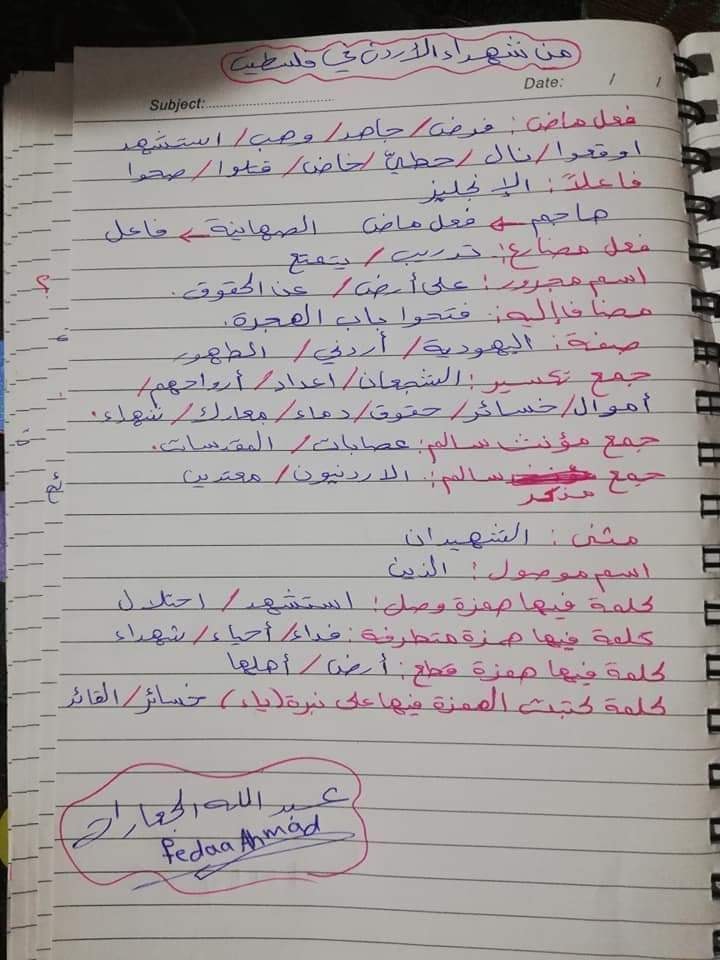 من شهداء الأردن في فلسطين
Subject:
Date: / /
فعل ماض: فرض/ جاهد/ وهب/ استشهد
اوقعوا/ نال/ حطيّ/ خاض/ قتلوا/ صحوا
فاعلاً: الإنجليز
هاجم ← فعل ماض الصهاينة ← فاعل
فعل مضارع: تدريب/ يتمتع
اسم مجرور: على أرض/ عن الحقوق.
مضافا إليه: فتحوا باب الهجرة.
صفة: اليهودية/ أردني/ الطهور
جمع تكسير: الشجعان/ اعداد/ أرواحهم/
أموال/ خسائر/ حقوق/ دماء/ معارك/ شهاء.
جمع مؤنث سالم: عصابات/ المقدسات.
جمع مذكر سالم: الاردنيون/ معتدين
مثنى: الشهيدان
اسم موصول: الذين
كلمة فيها همزة وصل: استشهد/ احتلال
كلمة فيها همزة متطرفة: فداء/ أحياء/ شهداء
كلمة فيها همزة قطع: أرض/ أهلها
كلمة كتبت الهمزة فيها على نبرة (ياء) خسائر/ القائد
عبد الله الجعارات
Fedaa Ahmad